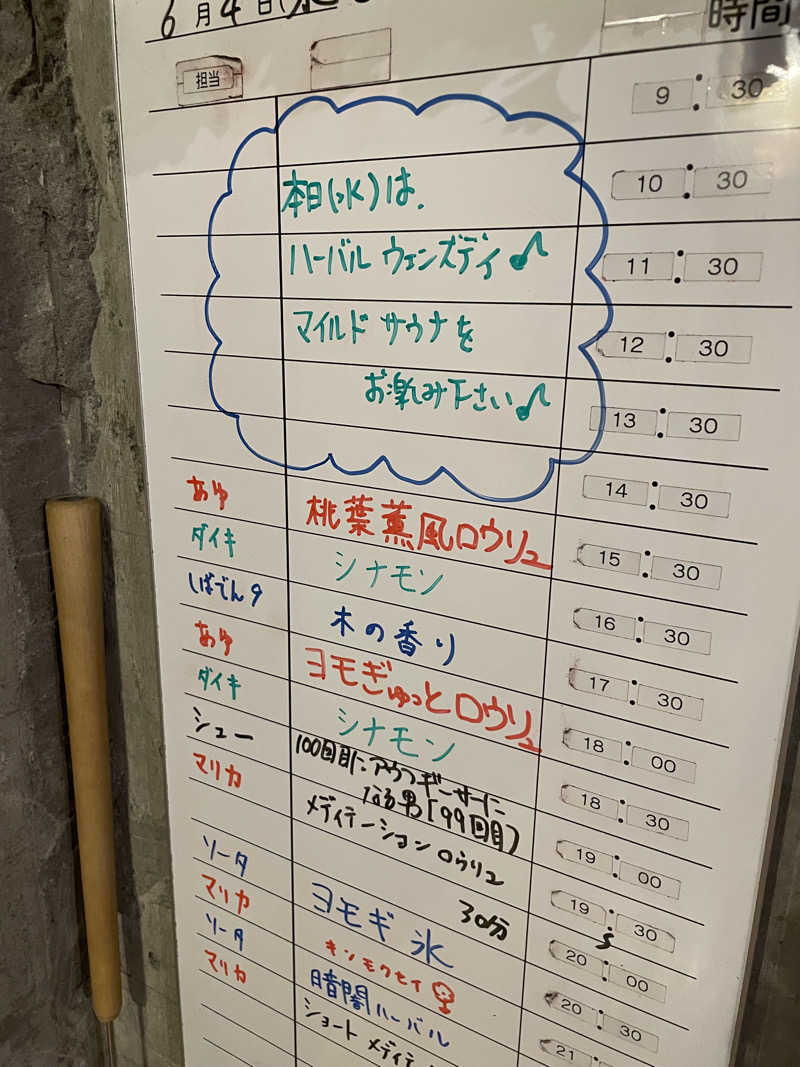 6月4日(水)
時間
担当
9:30
本日(水)は、 10:30
ハーバル ウェンズデイ♪ 11:30
マイルド サウナを 12:30
お楽しみ下さい♪ 13:30
14:30
あゆ 桃葉薫風ロウリュ 15:30
ダイキ シナモン 16:30
しばでんタ 木の香り 17:30
あゆ ヨモぎゅっとロウリュ 18:00
ダイキ シナモン 18:30
シュー 100回目にアウフギーサーに 19:00
なる男[99回目]
マリカ メディテーションロウリュ 19:30
30分 20:00
ソータ ヨモギ 氷 20:30
マリカ キンモクセイ 21:
ソータ 暗闇ハーバル
マリカ ショート メディテ